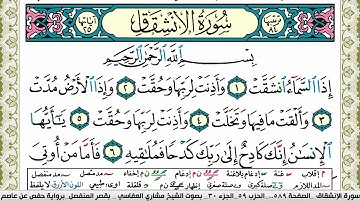 سُورَةُ الِانشِقَاقِ
بِسْمِ اللَّهِ الرَّحْمَٰنِ الرَّحِيمِ
إِذَا السَّمَاءُ انشَقَّتْ ١ وَأَذِنَتْ لِرَبِّهَا وَحُقَّتْ ٢ وَإِذَا الْأَرْضُ مُدَّتْ
٣ وَأَلْقَتْ مَا فِيهَا وَتَخَلَّتْ ٤ وَأَذِنَتْ لِرَبِّهَا وَحُقَّتْ ٥ يَا أَيُّهَا
الْإِنسَانُ إِنَّكَ كَادِحٌ إِلَىٰ رَبِّكَ كَدْحًا فَمُلَاقِيهِ ٦ فَأَمَّا مَنْ أُوتِيَ
سورة الإنشقاق الصفحة ٥٨٩ـ الحزب ٥٩ الجزء ٣٠ـ بصوت الشيخ مشاري العفاسي بقصر المنفصل برواية حفص عن عاصم